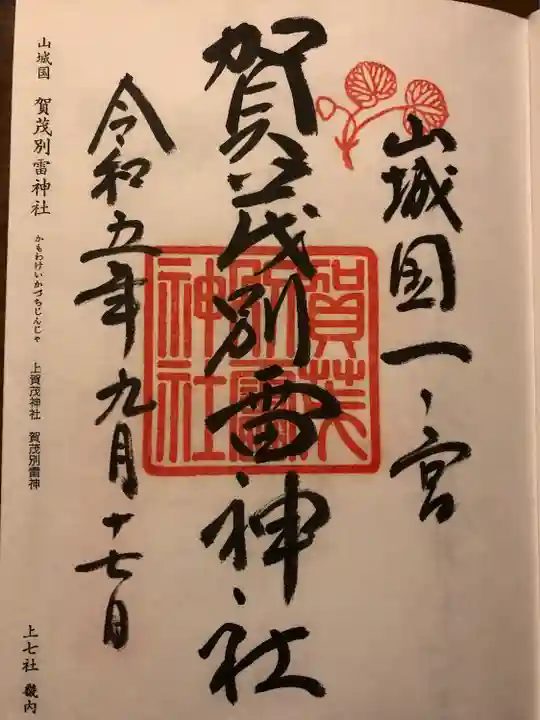 山城国一ノ宮
賀茂別雷神社
賀茂別雷神社
令和五年九月十七日
山城国 賀茂別雷神社 かもわけいかづちじんじゃ 上賀茂神社 賀茂別雷神
上七社 畿内